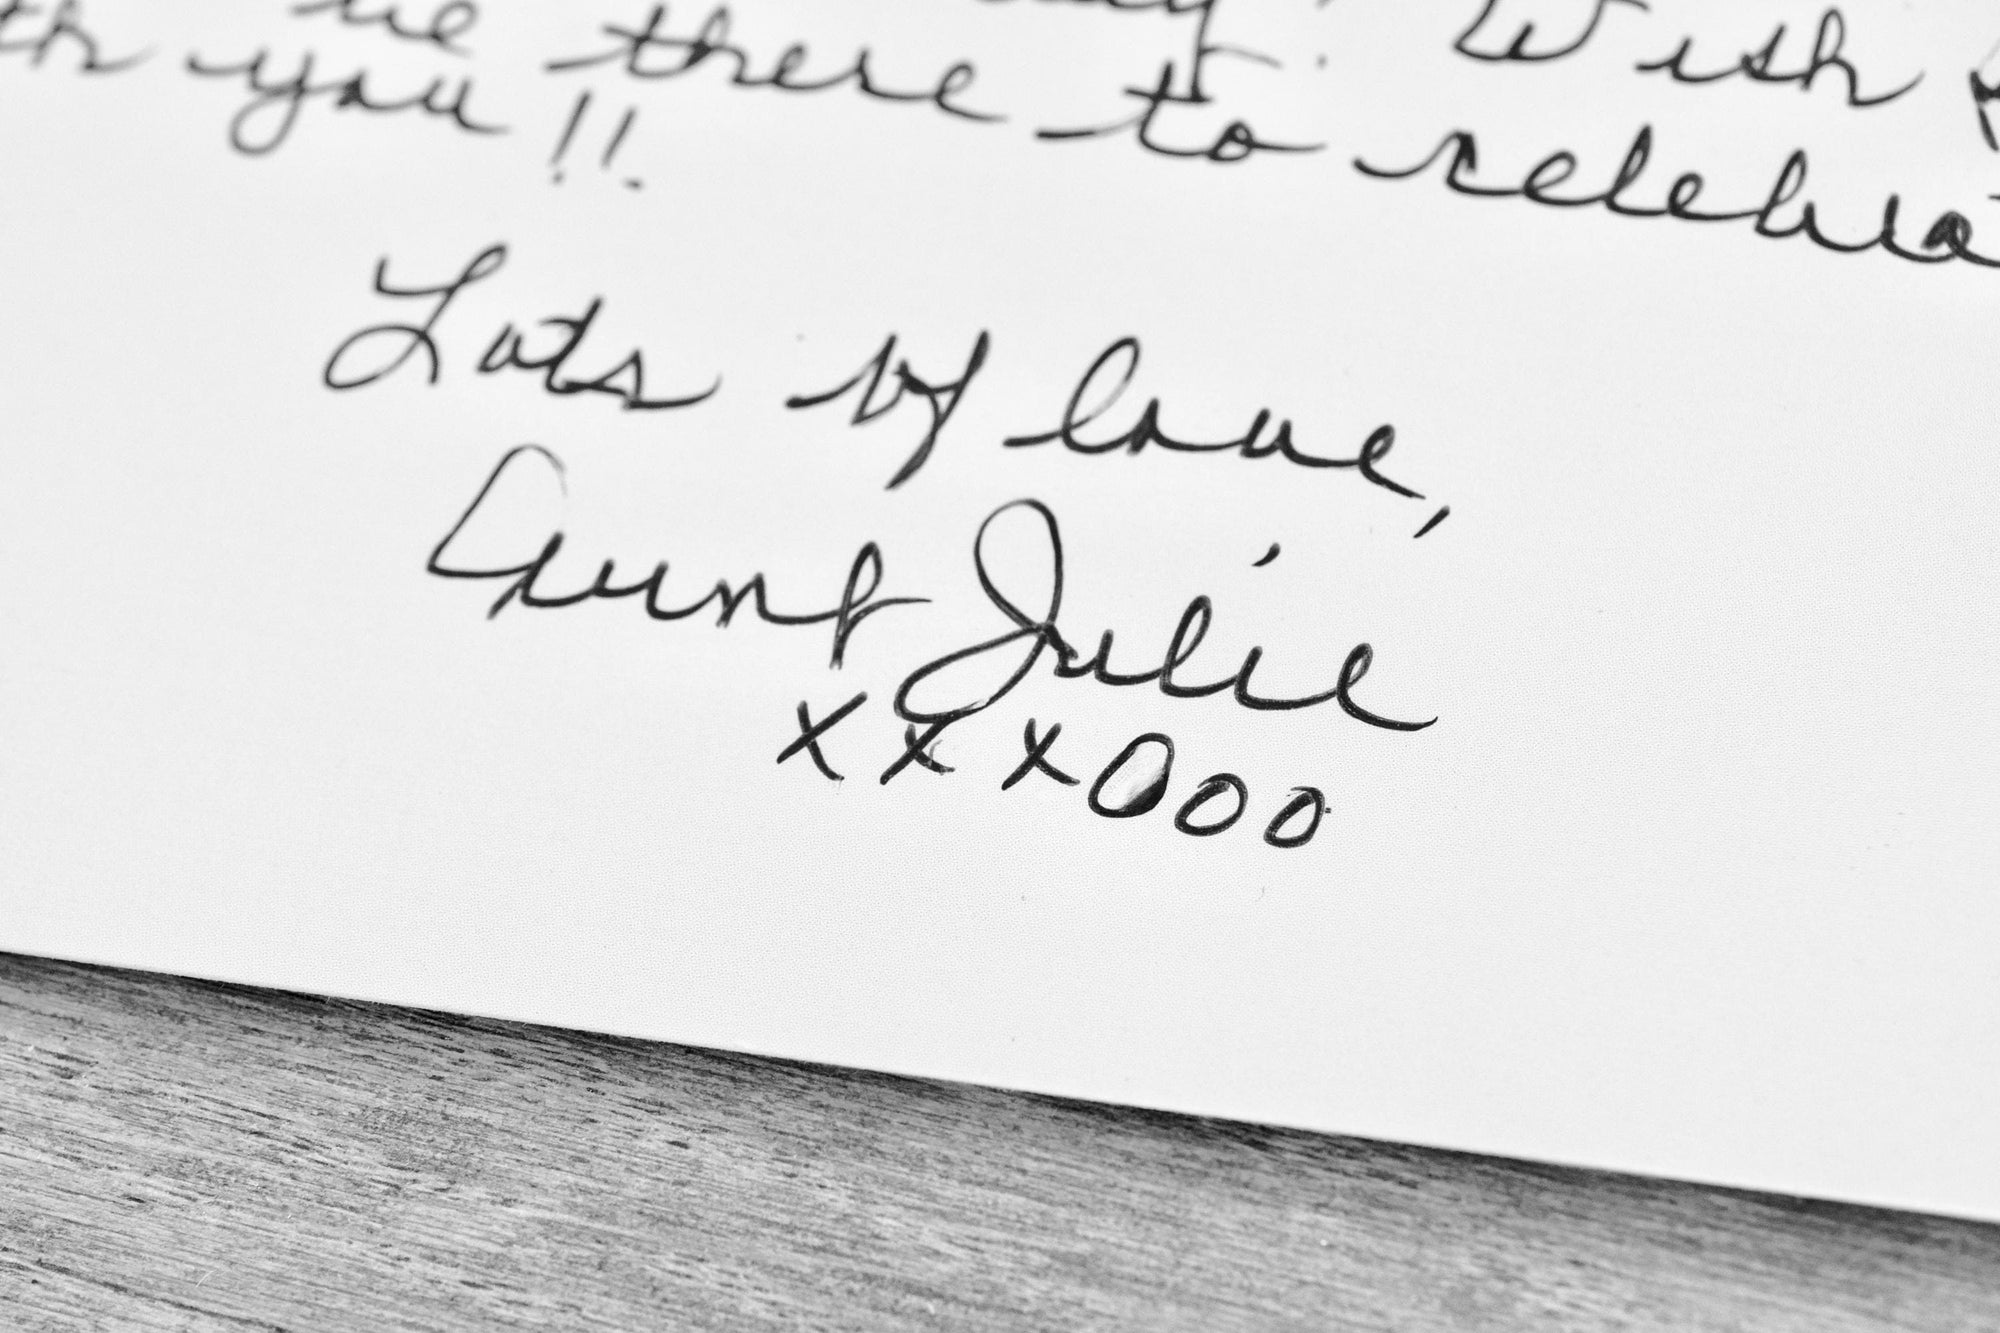 Wish
be there to celebra
th you!!
Lots of love,
Aunt Julie
xxxooo